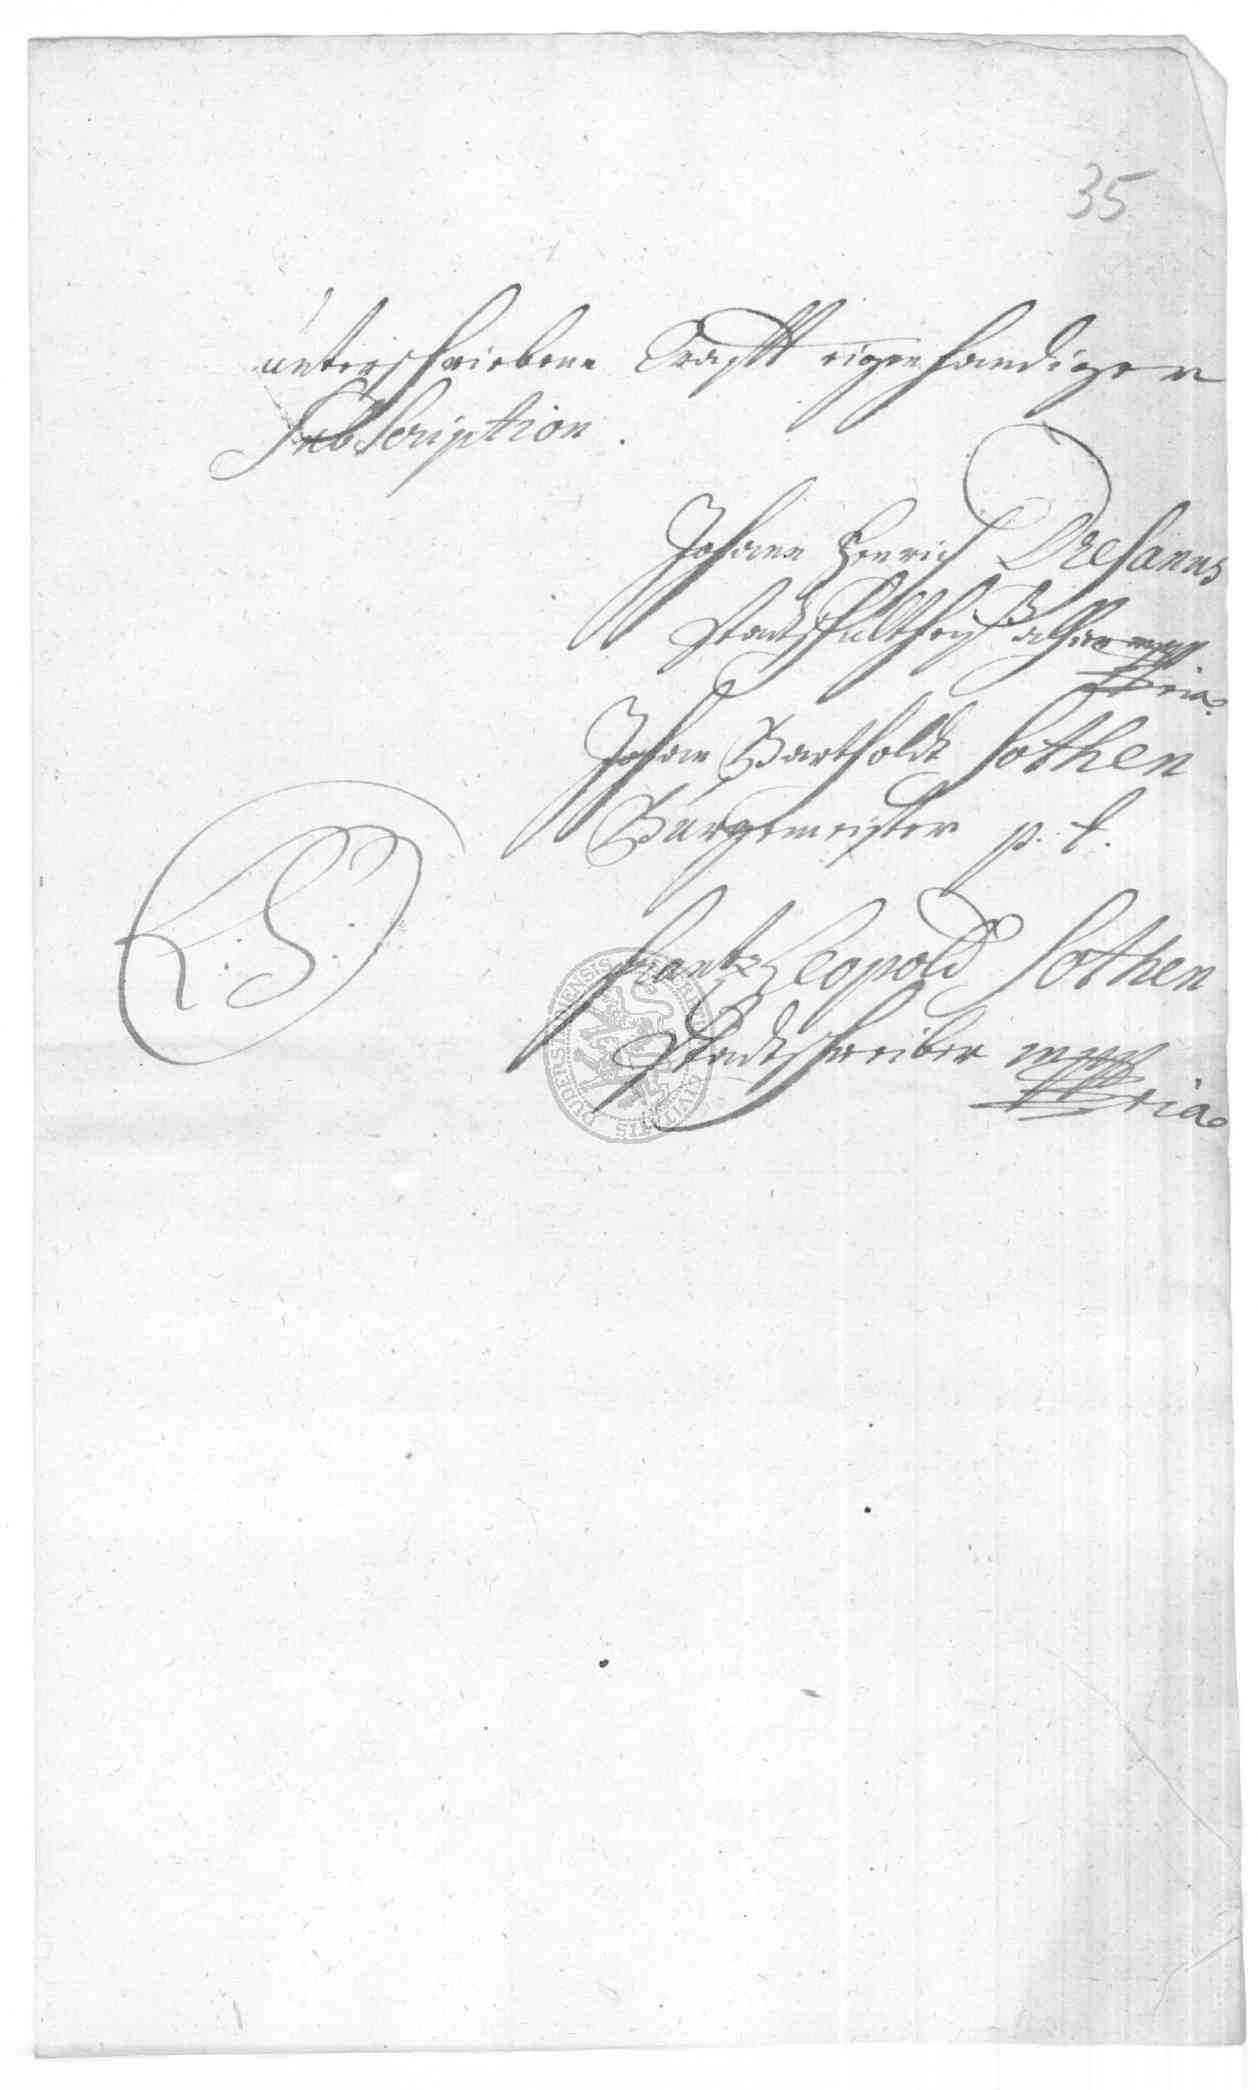 35
unterschriebene Crafft eigenhändiger
Subscription.
Johann Henrich Dresanus
Stadtschultheiß alhier mppria
Johan Barthold Sothen
Bürgemeister p. t.
L. S.
Frantz Leopold Sothen
Stadtschreiber mppria